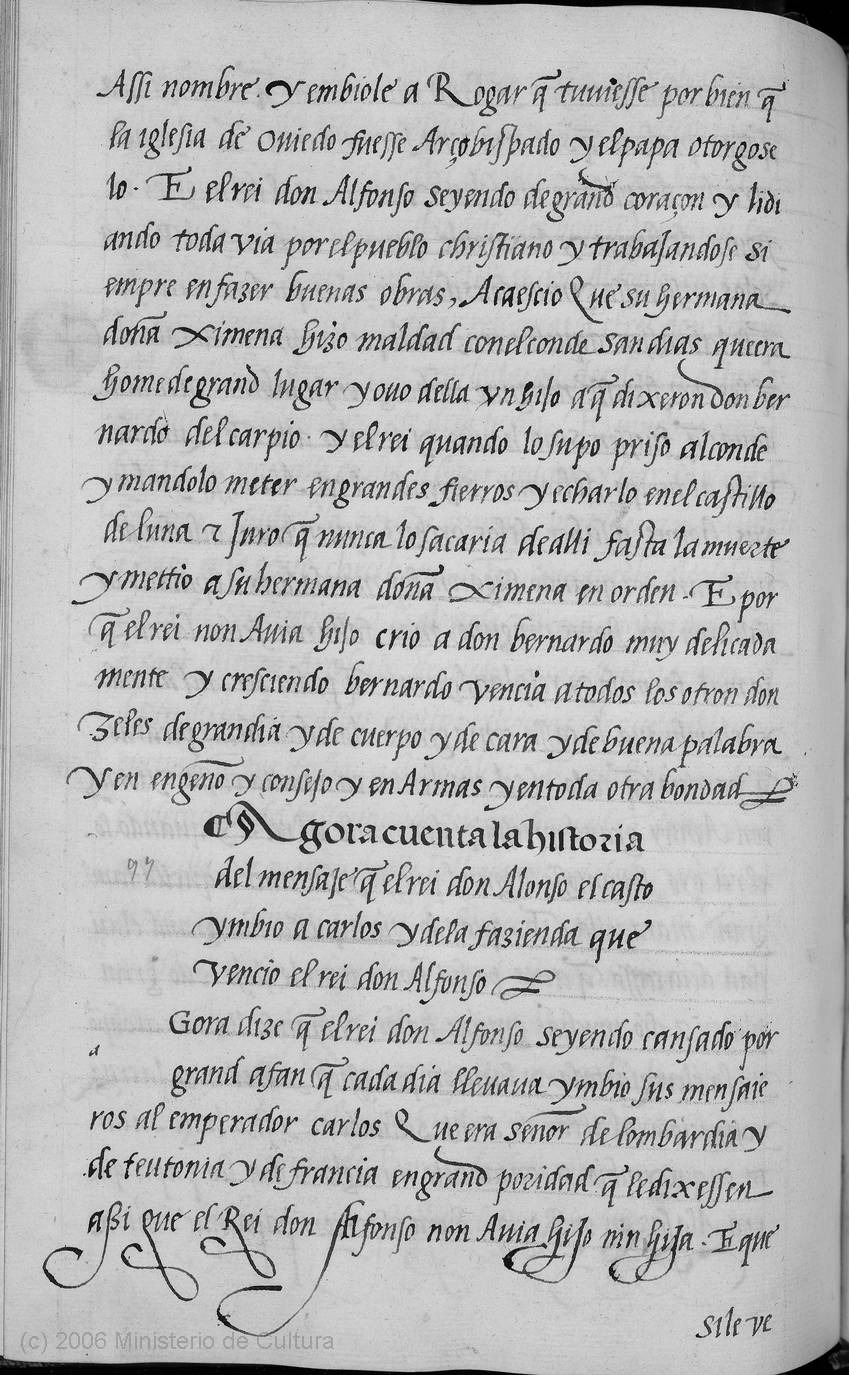 Assi nombre. Y embiole a Rogar q̃ tuuiesse por bien q̃
la iglesia de Ouiedo fuesse Arçobispado y el papa otorgose
lo. E el rei don Alfonso seyendo de grand coraçon y lidi
ando toda via por el pueblo christiano y trabajandose si
empre en fazer buenas obras, Acaescio Que su hermana
doña Ximena hizo maldad con el conde san dias que era
home de grand lugar y ouo della vn hijo a q̃ dixeron don ber
nardo del carpio. y el rei quando lo supo priso al conde
y mandolo meter en grandes fierros y echarlo en el castillo
de luna τ Juro q̃ nunca lo sacaria de alli fasta la muerte
y mettio a su hermana doña Ximena en orden. E por
q̃ el rei non Auia hijo crio a don bernardo muy delicada
mente y cresciendo bernardo vencia a todos los otron don
zeles de grandia y de cuerpo y de cara y de buena palabra
Y en engeño y consejo y en Armas y en toda otra bondad
Agora cuenta la historia
97
del mensaje q̃ el rei don Alonso el casto
ymbio a carlos y de la fazienda que
vencio el rei don Alfonso
a
Gora dize q̃ el rei don Alfonso seyendo cansado por
grand afan q̃ cada dia lleuaua ymbio sus mensaie
ros al emperador carlos Que era señor de lombardia y
de teutonia y de francia en grand poridad q̃ le dixessen
assi que el Rei don Alfonso non Auia hijo nin hija. E que
si le ve
(c) 2006 Ministerio de Cultura